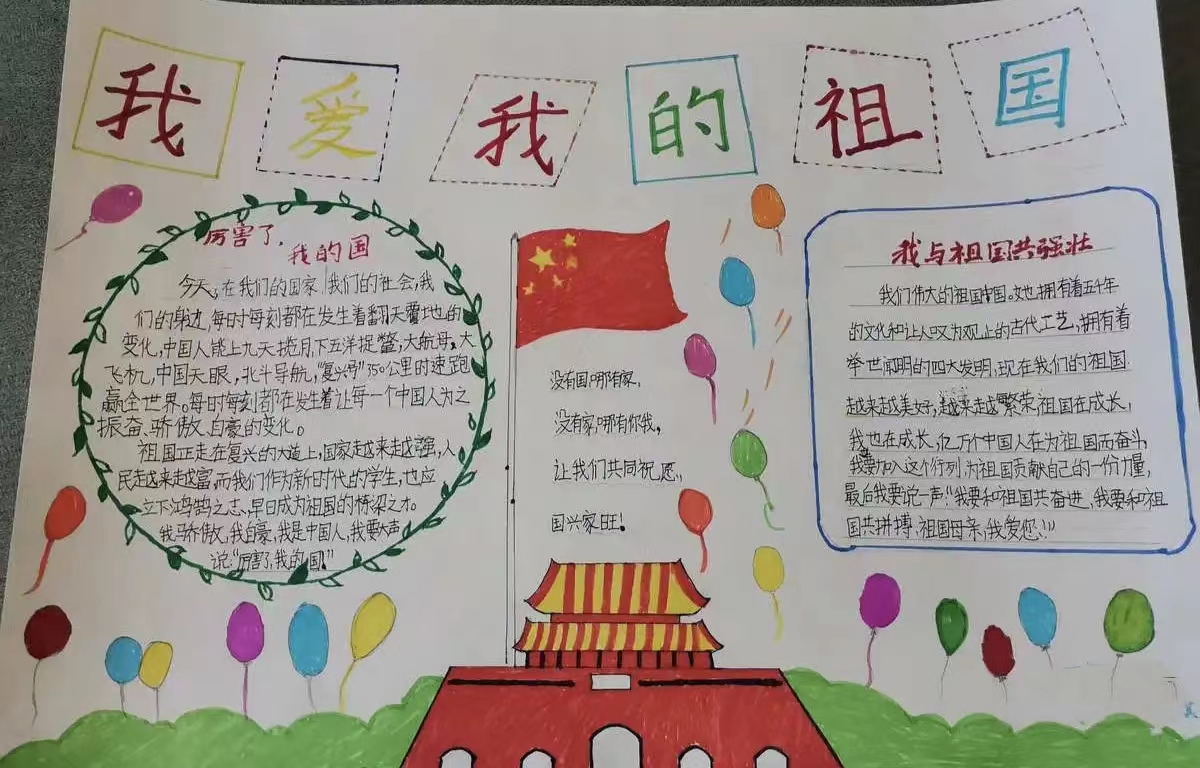 我爱我的祖国
厉害了，
我的国
今天，在我们的国家，我们的社会，我
们的身边，每时每刻都在发生着翻天覆地的
变化，中国人能上九天揽月，下五洋捉鳖，大航母，大
飞机，中国天眼，北斗导航，"复兴号"350公里时速跑
赢全世界。每时每刻都在发生着让每一个中国人为之
振奋、骄傲、自豪的变化。
祖国正走在复兴的大道上，国家越来越强，人
民越来越富，而我们作为新时代的学生，也应
立下鸿鹄之志、早日成为祖国的桥梁之才。
我骄傲，我自豪，我是中国人，我要大声
说："厉害了，我的国！"
没有国，哪有家，
没有家，哪有你我，
让我们共同祝愿，
国兴家旺！
我与祖国共强壮
我们伟大的祖国中国。她拥有着五千年
的文化和让人叹为观止的古代工艺，拥有着
举世闻明的四大发明，现在我们的祖国
越来越美好，越来越繁荣，祖国在成长，
我也在成长，亿万个中国人在为祖国而奋斗，
我要加入这个行列，为祖国贡献自己的一份力量，
最后我要说一声："我要和祖国共奋进，我要和祖
国共拼搏，祖国母亲，我爱您！"